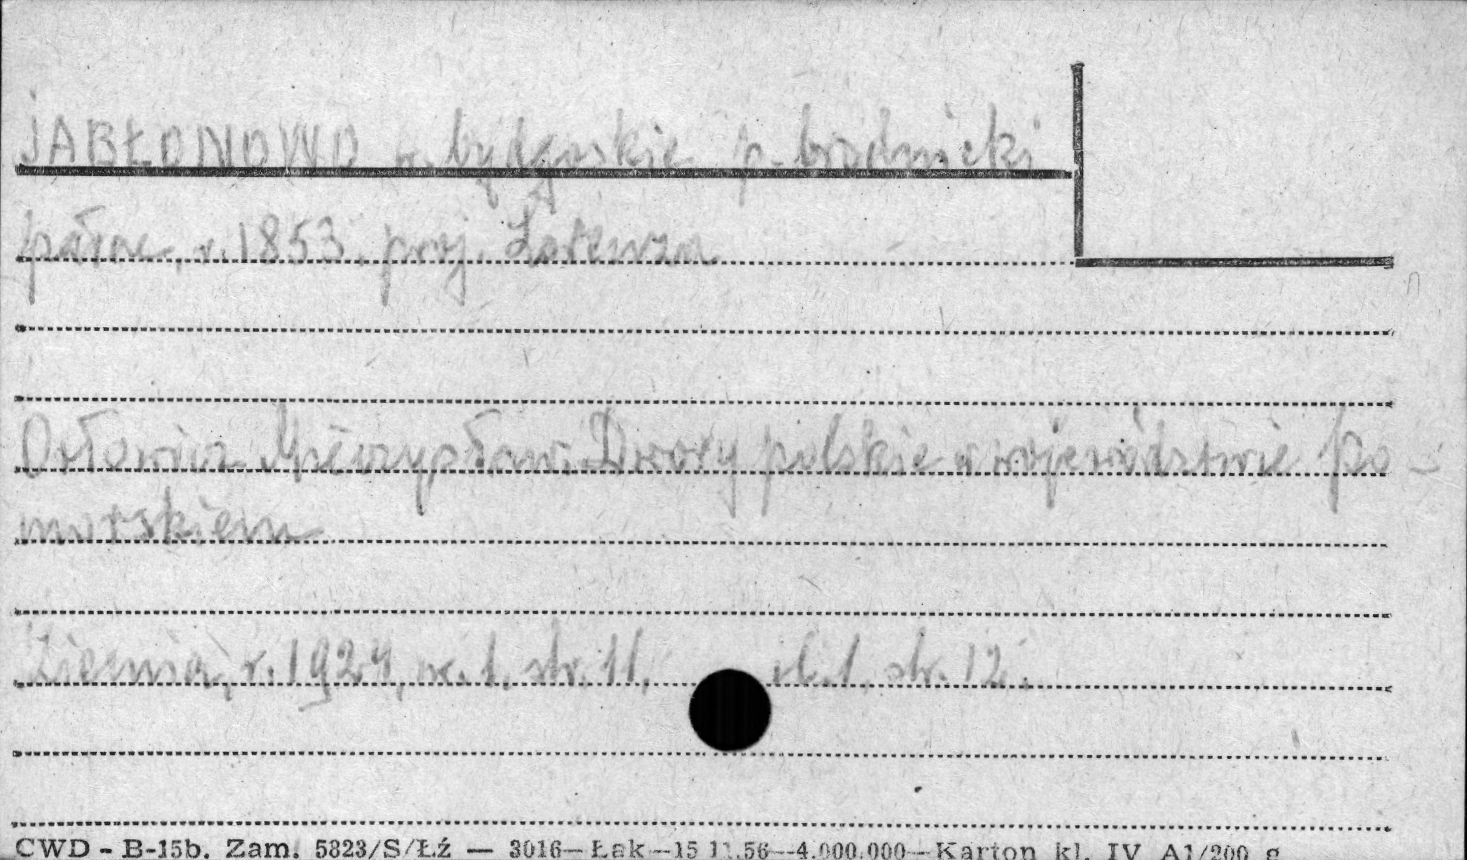 JABŁONOWO w. bydgoskie p. brodnicki
pałac, r. 1853, proj. Lorenza
Orłowicz Mieczysław. Dwory polskie w województwie po-
morskiem
Ziemia, r. 1924, nr. 1, str. 11, il. 1, str. 12.
CWD - B-15b. Zam. 5823/S/Łź — 3016—Łak—15 11.56—4.000.000—Karton kl. IV A1/200 g